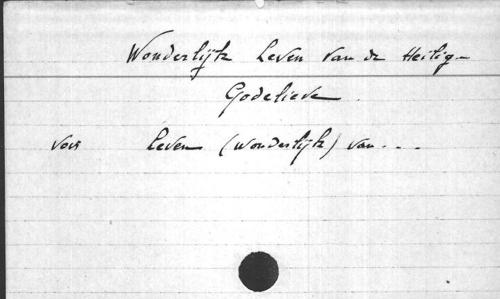 Wonderlijk Leven van de Heilig-
Godelieve.
voir Leven (wonderlijk) van...